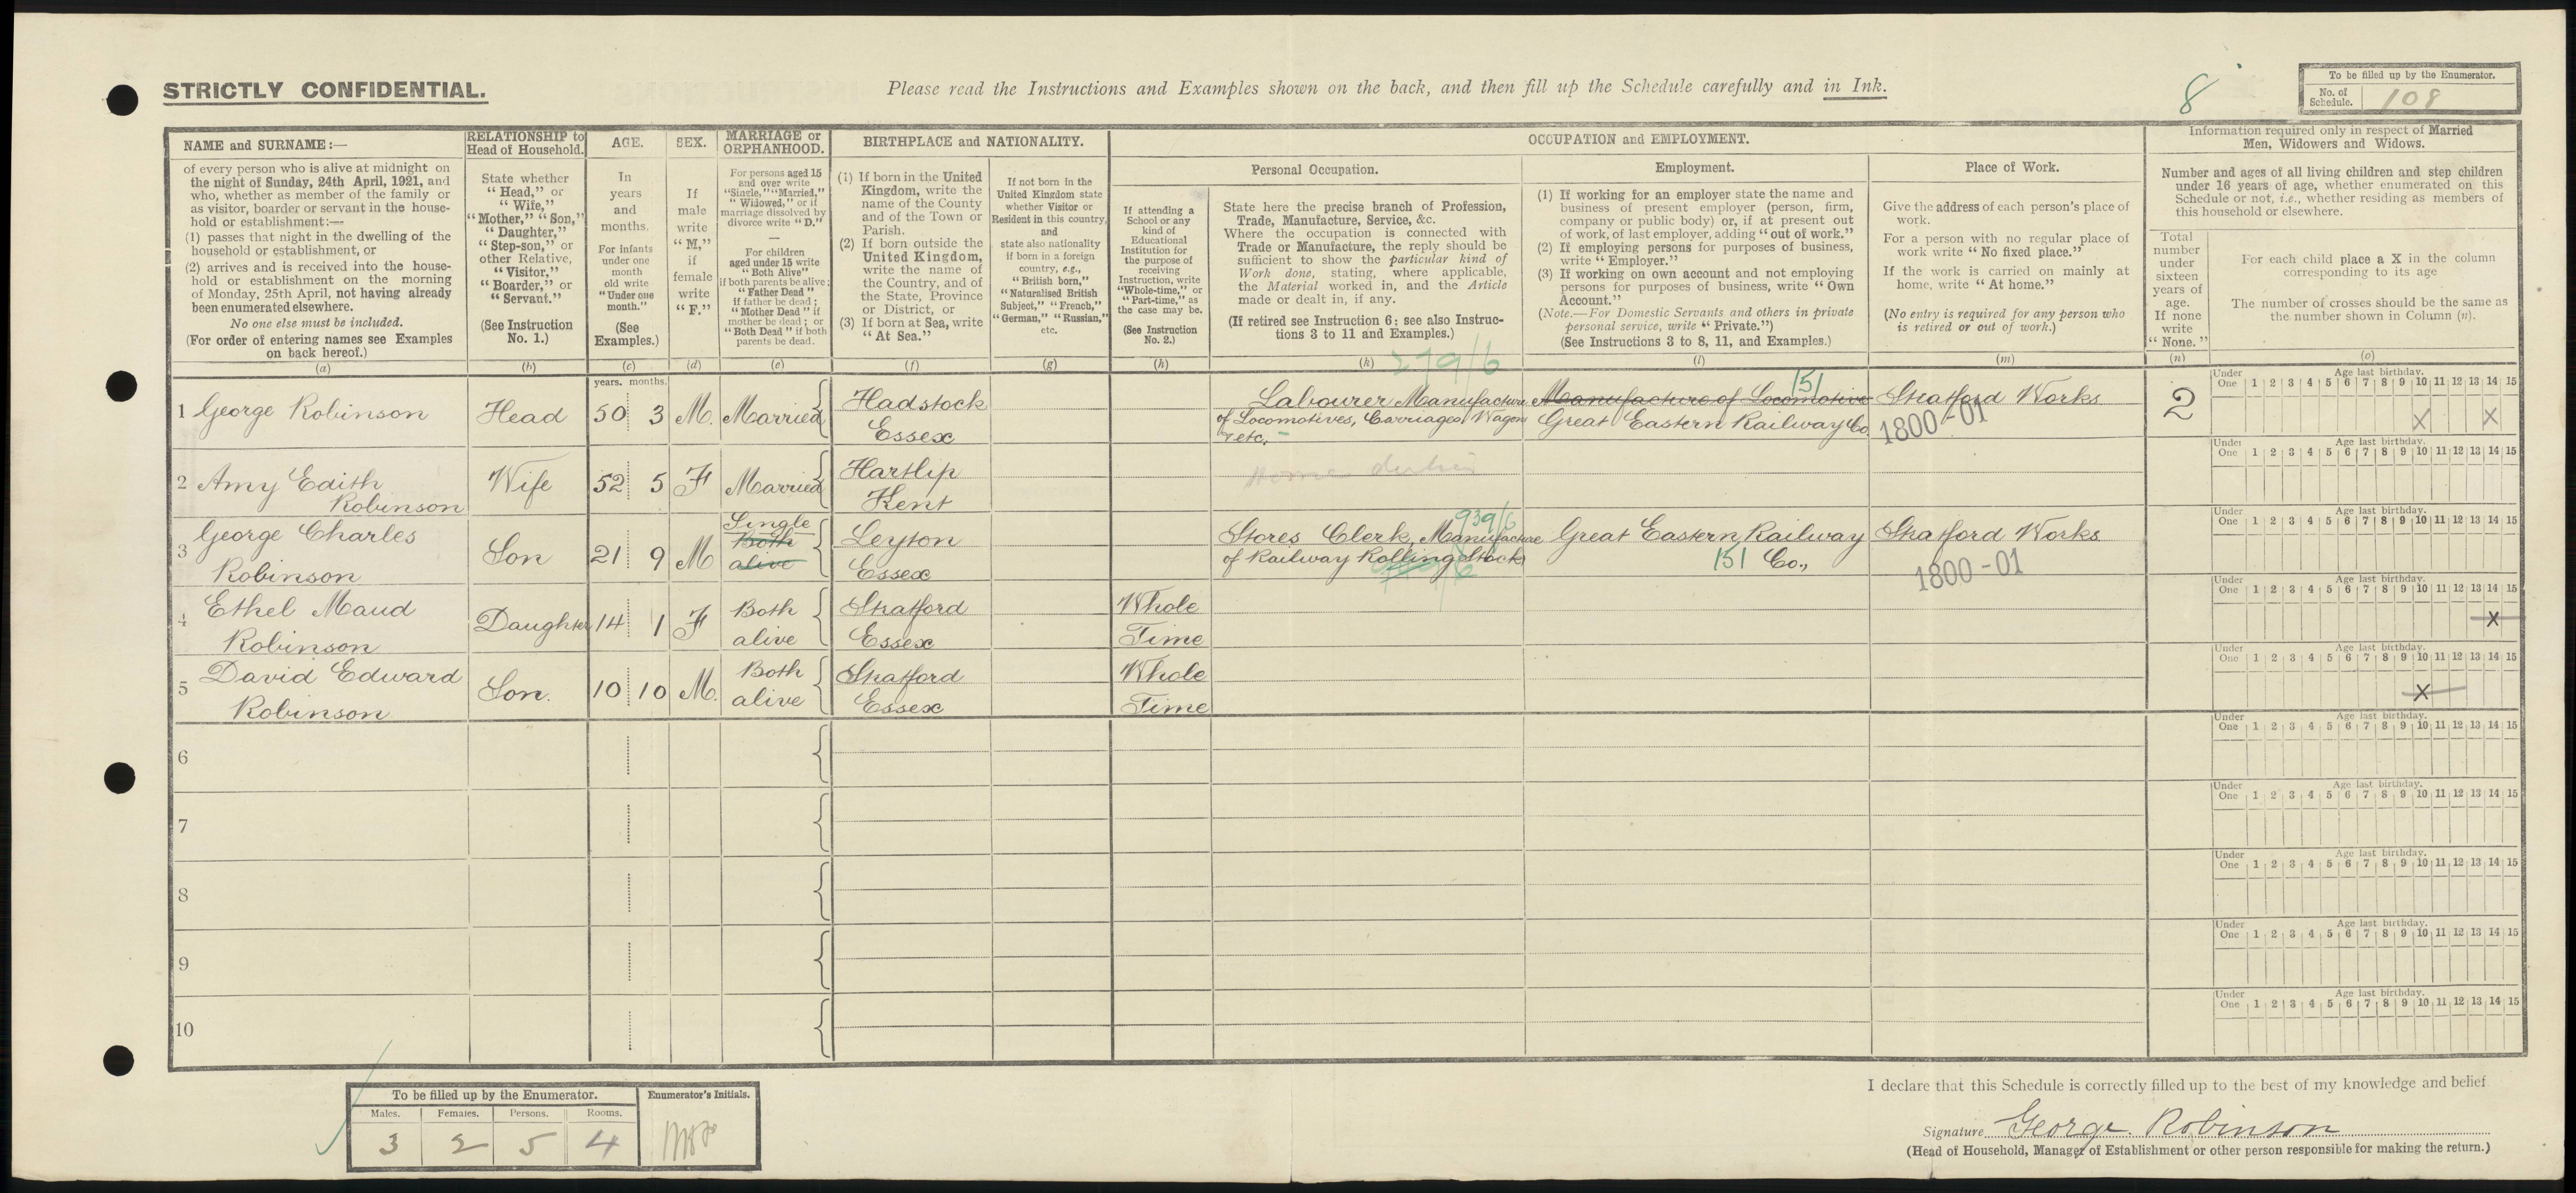 STRICTLY CONFIDENTIAL.
Please read the Instructions and Examples shown on the back, and then fill up the Schedule carefully and in Ink.
8
To be filled up by the Enumerator.
No. of Schedule. 108
NAME and SURNAME:—
of every person who is alive at midnight on
the night of Sunday, 24th April, 1921, and
who, whether as member of the family or
as visitor, boarder or servant in the house-
hold or establishment:—
(1) passes that night in the dwelling of the
household or establishment, or
(2) arrives and is received into the house-
hold or establishment on the morning
of Monday, 25th April, not having already
been enumerated elsewhere.
No one else must be included.
(For order of entering names see Examples
on back hereof.)
(a)
RELATIONSHIP to
Head of Household.
State whether
"Head," or
"Wife,"
"Mother," "Son,"
"Daughter,"
"Step-son," or
other Relative,
"Visitor,"
"Boarder," or
"Servant."
(See Instruction
No. 1.)
(b)
AGE.
In
years
and
months.
For infants
under one
month
old write
"Under one
month."
(See
Examples.)
(c)
SEX.
If
male
write
"M,"
if
female
write
"F."
(d)
MARRIAGE or
ORPHANHOOD.
For persons aged 15
and over write
"Single," "Married,"
"Widowed," or if
marriage dissolved by
divorce write "D."
—
For children
aged under 15 write
"Both Alive"
if both parents be alive;
"Father Dead"
if father be dead;
"Mother Dead" if
mother be dead; or
"Both Dead" if both
parents be dead.
(e)
BIRTHPLACE and NATIONALITY.
(1) If born in the United
Kingdom, write the
name of the County
and of the Town or
Parish.
(2) If born outside the
United Kingdom,
write the name of
the Country, and of
the State, Province
or District, or
(3) If born at Sea, write
"At Sea."
(f)
If not born in the
United Kingdom state
whether Visitor or
Resident in this country,
and
state also nationality
if born in a foreign
country, e.g.,
"British born,"
"Naturalised British
Subject," "French,"
"German," "Russian,"
etc.
(g)
OCCUPATION and EMPLOYMENT.
If attending a
School or any
kind of
Educational
Institution for
the purpose of
receiving
Instruction, write
"Whole-time," or
"Part-time," as
the case may be.
(See Instruction
No. 2.)
(h)
Personal Occupation.
State here the precise branch of Profession,
Trade, Manufacture, Service, &c.
Where the occupation is connected with
Trade or Manufacture, the reply should be
sufficient to show the particular kind of
Work done, stating, where applicable,
the Material worked in, and the Article
made or dealt in, if any.
(If retired see Instruction 6: see also Instruc-
tions 3 to 11 and Examples.)
(k)
Employment.
(1) If working for an employer state the name and
business of present employer (person, firm,
company or public body) or, if at present out
of work, of last employer, adding "out of work."
(2) If employing persons for purposes of business,
write "Employer."
(3) If working on own account and not employing
persons for purposes of business, write "Own
Account."
(Note.—For Domestic Servants and others in private
personal service, write "Private.")
(See Instructions 3 to 8, 11, and Examples.)
(l)
Place of Work.
Give the address of each person's place of
work.
For a person with no regular place of
work write "No fixed place."
If the work is carried on mainly at
home, write "At home."
(No entry is required for any person who
is retired or out of work.)
(m)
Information required only in respect of Married
Men, Widowers and Widows.
Number and ages of all living children and step children
under 16 years of age, whether enumerated on this
Schedule or not, i.e., whether residing as members of
this household or elsewhere.
Total
number
under
sixteen
years of
age.
If none
write
"None."
(n)
For each child place a X in the column
corresponding to its age
The number of crosses should be the same as
the number shown in Column (n).
(o)
years. months.
1 George Robinson Head 50 3 M. Married Hadstock Essex
Labourer Manufacture
of Locomotives, Carriages, Wagon
& etc.
Manufacture of Locomotive 151
Great Eastern Railway Co.
Stratford Works
1800-01
2
Under One 1 2 3 4 5 6 7 8 9 10 11 12 13 14 15
Age last birthday.
X X
2 Amy Edith Robinson Wife 52 5 F Married Hartlip Kent
Home duties
Under One 1 2 3 4 5 6 7 8 9 10 11 12 13 14 15
Age last birthday.
3 George Charles Robinson Son 21 9 M Single Both alive Leyton Essex
Stores Clerk, Manufacture 939/6
of Railway Rolling Stock
Great Eastern Railway
151 Co.,
Stratford Works
1800-01
Under One 1 2 3 4 5 6 7 8 9 10 11 12 13 14 15
Age last birthday.
4 Ethel Maud Robinson Daughter 14 1 F Both alive Stratford Essex Whole Time
Under One 1 2 3 4 5 6 7 8 9 10 11 12 13 14 15
Age last birthday.
X
5 David Edward Robinson Son. 10 10 M. Both alive Stratford Essex Whole Time
Under One 1 2 3 4 5 6 7 8 9 10 11 12 13 14 15
Age last birthday.
X
6
Under One 1 2 3 4 5 6 7 8 9 10 11 12 13 14 15
Age last birthday.
7
Under One 1 2 3 4 5 6 7 8 9 10 11 12 13 14 15
Age last birthday.
8
Under One 1 2 3 4 5 6 7 8 9 10 11 12 13 14 15
Age last birthday.
9
Under One 1 2 3 4 5 6 7 8 9 10 11 12 13 14 15
Age last birthday.
10
Under One 1 2 3 4 5 6 7 8 9 10 11 12 13 14 15
Age last birthday.
To be filled up by the Enumerator.
Males. Females. Persons. Rooms.
3 2 5 4
Enumerator's Initials.
I declare that this Schedule is correctly filled up to the best of my knowledge and belief
Signature George Robinson
(Head of Household, Manager of Establishment or other person responsible for making the return.)